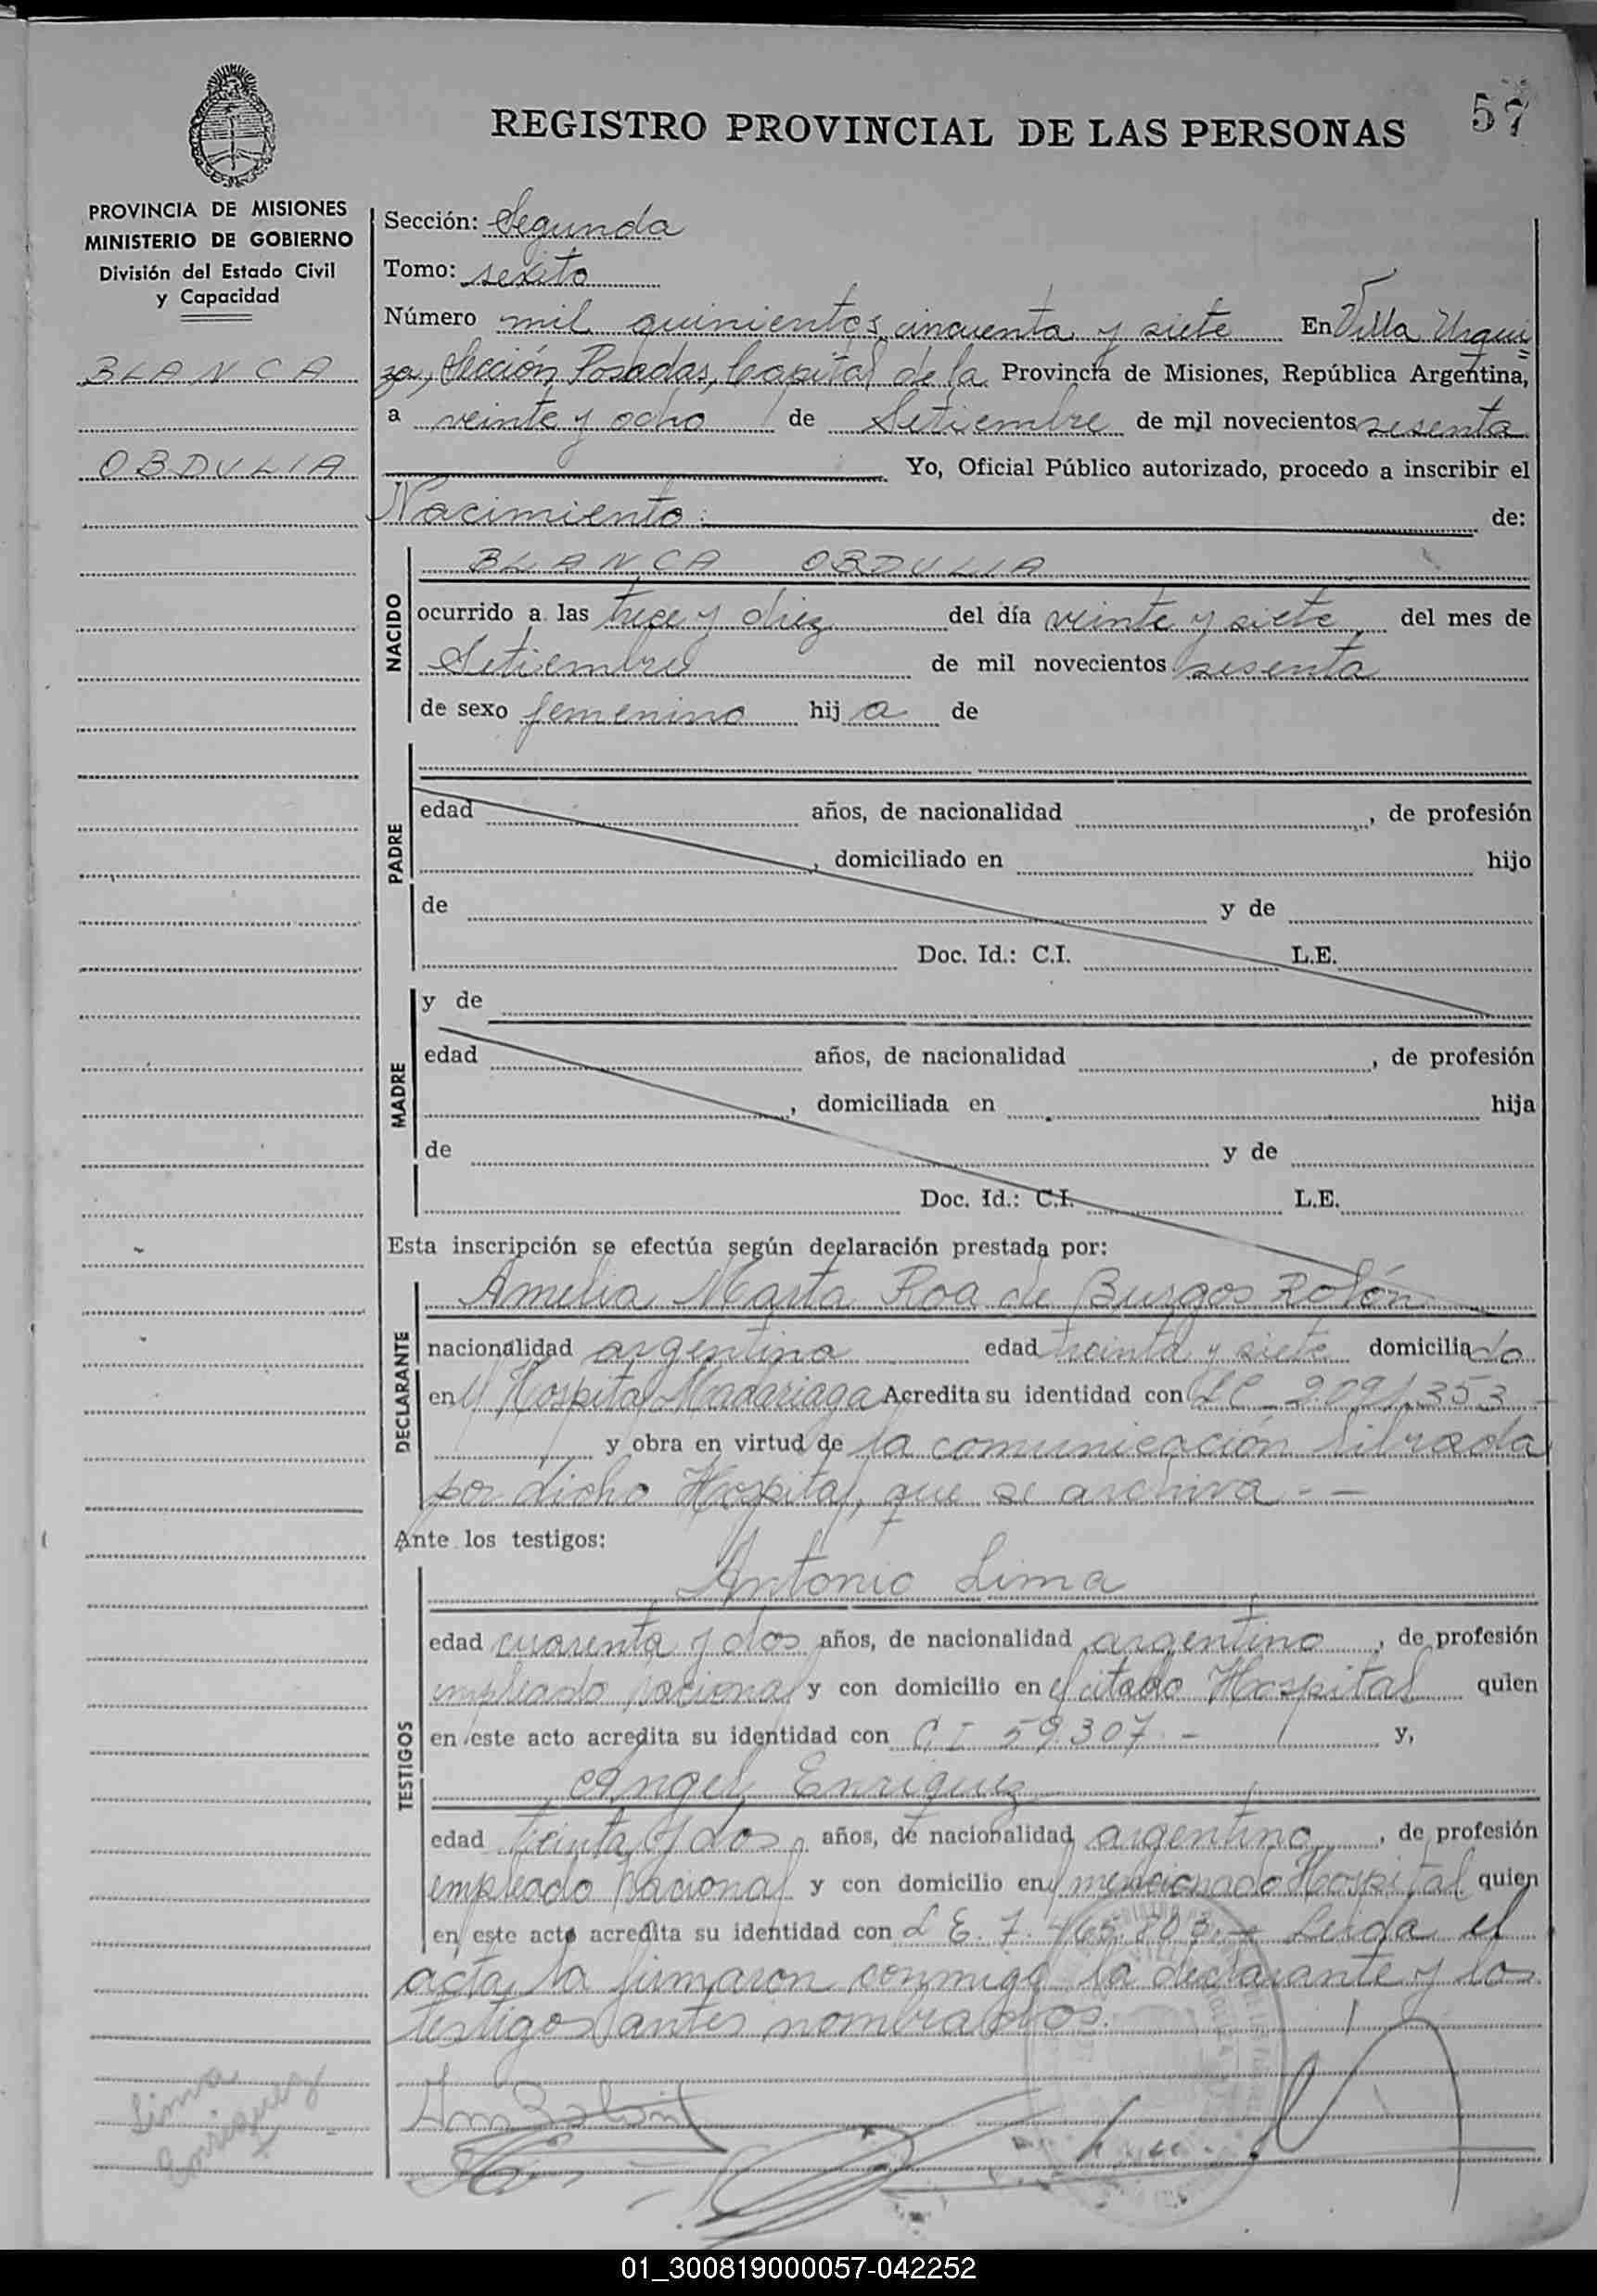 57
REGISTRO PROVINCIAL DE LAS PERSONAS
PROVINCIA DE MISIONES
MINISTERIO DE GOBIERNO
División del Estado Civil
y Capacidad
BLANCA
OBDULIA
Sección: Segunda
Tomo: sexto
Número mil quinientos cincuenta y siete En Villa Urqui
za, Sección Posadas, Capital de la Provincia de Misiones, República Argentina,
a veinte y ocho de Setiembre de mil novecientos sesenta
Yo, Oficial Público autorizado, procedo a inscribir el
Nacimiento de:
NACIDO
BLANCA OBDULIA
ocurrido a las trece y diez del día veinte y siete del mes de
Setiembre de mil novecientos sesenta
de sexo femenino hija de
PADRE
edad años, de nacionalidad , de profesión
, domiciliado en hijo
de y de
Doc. Id.: C.I. L.E.
MADRE
y de
edad años, de nacionalidad , de profesión
, domiciliada en hija
de y de
Doc. Id.: C.I. L.E.
Esta inscripción se efectúa según declaración prestada por:
DECLARANTE
Amelia Marta Roa de Burgos Rolón
nacionalidad argentina edad treinta y siete domiciliado
en el Hospital Madariaga Acredita su identidad con LC 2091.353 -
y obra en virtud de la comunicación librada
por dicho Hospital, que se archiva - -
Ante los testigos:
TESTIGOS
Antonio Lima
edad cuarenta y dos años, de nacionalidad argentino , de profesión
empleado nacional y con domicilio en el citado Hospital quien
en este acto acredita su identidad con C I 59.307 - y,
Angel Enriquez
edad treinta y dos años, de nacionalidad argentino , de profesión
empleado nacional y con domicilio en el mencionado Hospital quien
en este acto acredita su identidad con L E. 7.465.803. - Leida el
acta, la firmaron conmigo la declarante y los
testigos antes nombrados.
Lima
Enriquez
01_300819000057-042252